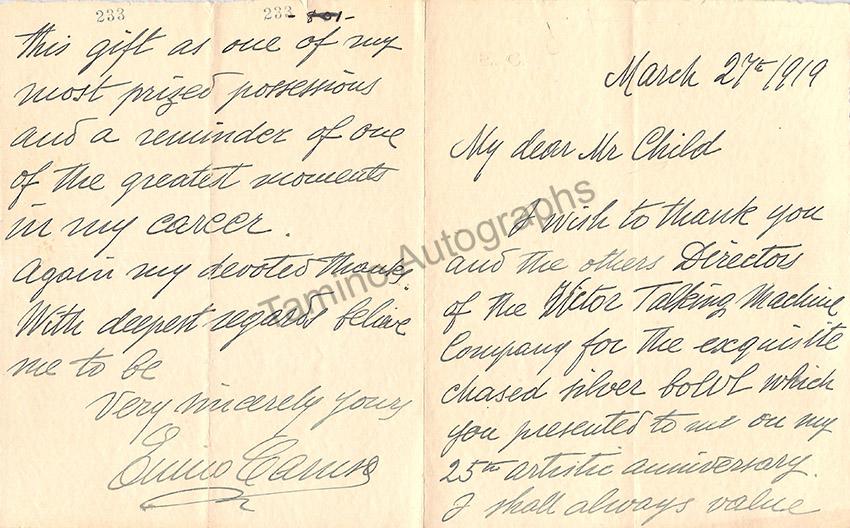 March 27th 1919
My dear Mr Child
I wish to thank you
and the others Directors
of the Victor Talking Machine
Company for the exquisite
chased silver bowl which
you presented to me on my
25th artistic anniversary.
I shall always value
233 233 -801-
this gift as one of my
most prized possessions
and a reminder of one
of the greatest moments
in my career.
Again my devoted thanks.
With deepest regards believe
me to be
Very sincerely yours
Enrico Caruso
Tamino Autographs